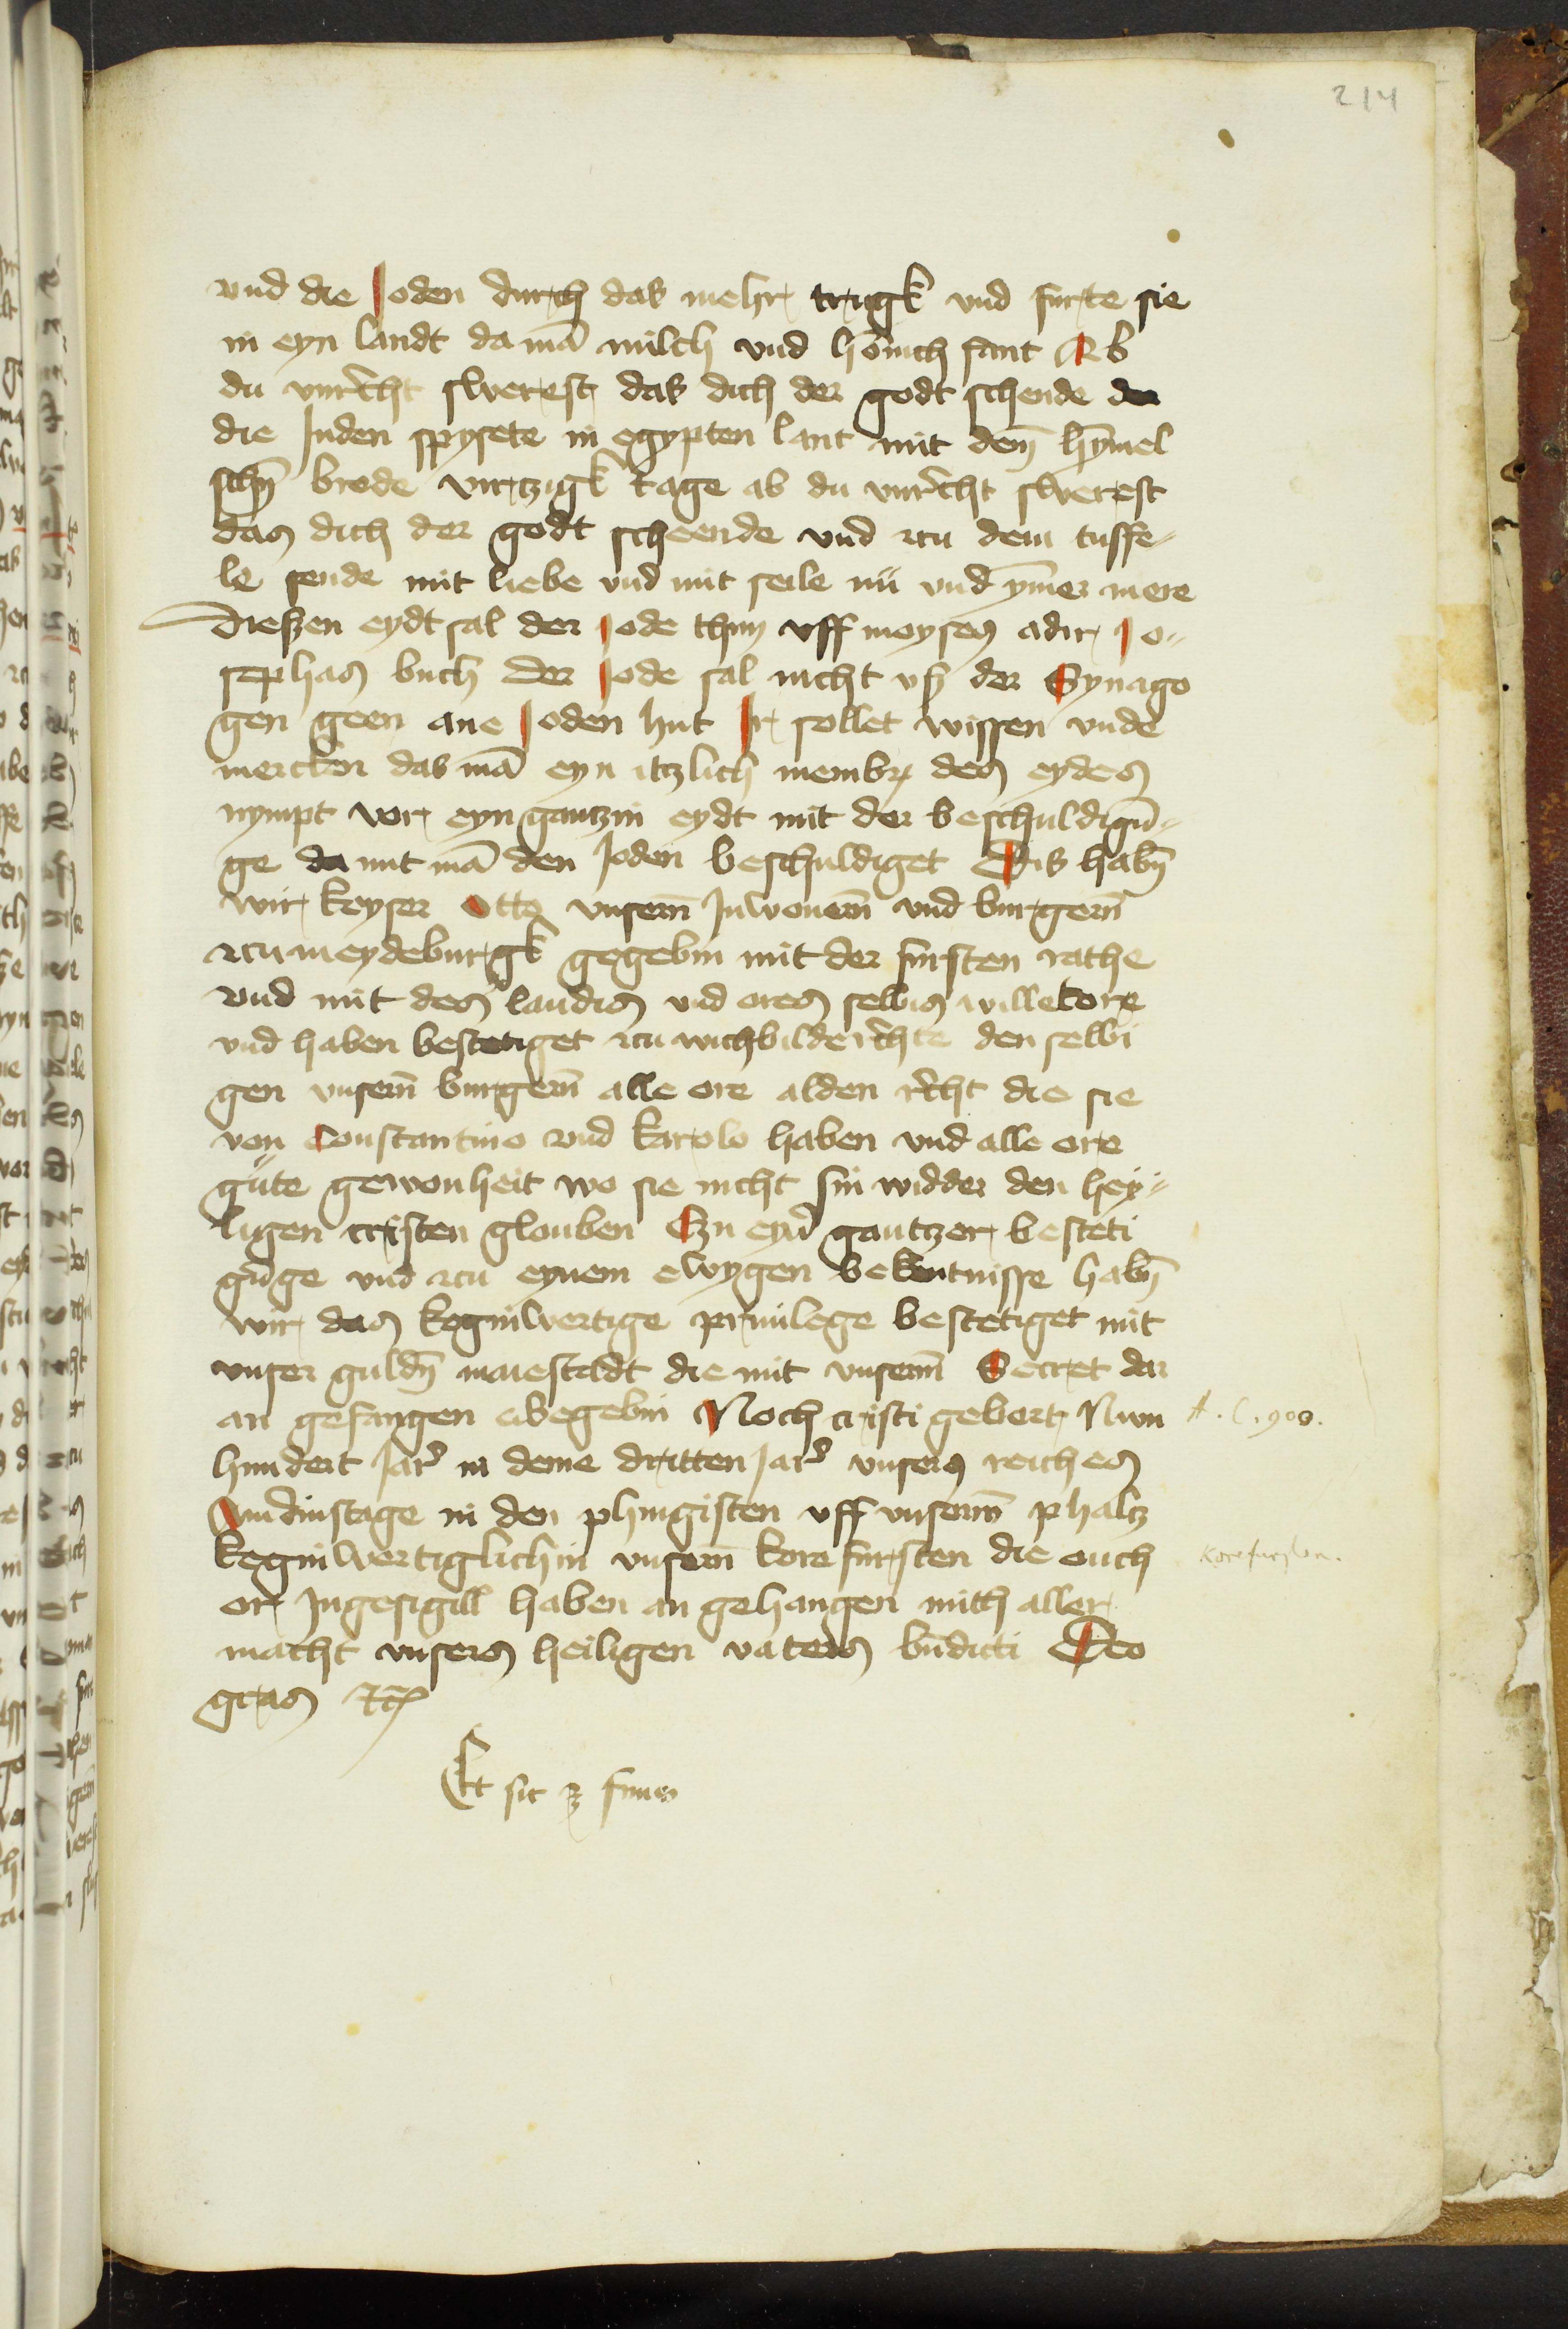 214
vnd die Joden durch das mehr trugk vnd furte sie
in eyn landt da mā milch vnd honich fant Ab
du vnrecht swerest das dich der godt schende der
die Juden spysete in egypten lant mit dem̄ hȳmel
schn̄ brode virtzigk tage ab du vnrecht swerest
das dich der godt scheende vnd zcu dem tuffe-
le sende mit liebe vnd mit seile nü vnd ȳmer mere
Dieszen eydt sal der Jode thuy vff moyses adir Jo-
sephas buch der Jode sal nicht vß der Synago
gen geen ane Joden hut Ir sollet wissen vnde
mercken das mā eyn itzlich membr des eydes
nympt vor eyn gantzin eydt mit der beschuldigū-
ge da mit mā den Joden beschuldiget Dis habn̄
wir keyser Otto vnsern̄ Inwonern̄ vnd burgern̄
zcu meydeburgk gegebin mit der fursten rathe
vnd mit des landis vnd ores selbis willekore
vnd haben bestetiget zcu wichbilde rechte den selbi
gen vnsern̄ burgern̄ alle ore alden recht die sie
von Constantino vnd karolo haben vnd alle ore
gute gewonheit wo sie nicht sin widder den hey-
ligen cristen glouben Czu eynr gantzer besteti
gūge vnd zcu eynem ewygen bekentnisse habn̄
wir das keginwertige priuilege bestetiget mit
vnser guldn̄ maiestadt die mit vnserm̄ Secret dar
an gefangen Noch cristi gebort Nwn
A. C. 900.
hundert Jar in deme dritten Jar vnsers reiches
Am dinstage in den phingisten vff vnserm̄ phaltz
keginwertiglichin vnsern̄ kore fursten die ouch
kore fursten.
or Ingesigill haben an gehangen mith aller
macht vnsers heiligen vaters bn̄dicti Deo
gracias etc
Et sic est finis